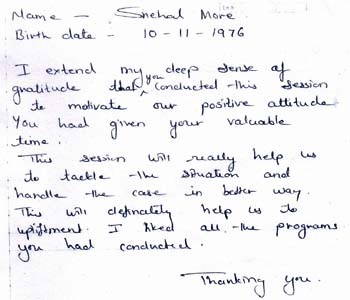 Name – Snehal More
Birth date – 10-11-1976
I extend my deep sense of
gratitude that you conducted this session
to motivate our positive attitude
You had given your valuable
time.
This session will really help us
to tackle the situation and
handle the case in better way.
This will definately help us to
upliftment. I liked all the programs
you had conducted.
Thanking you.